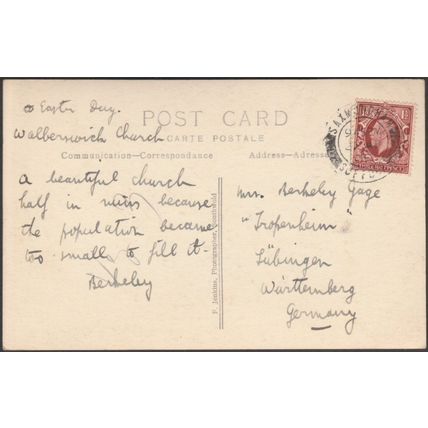 Easter Day.
Walberswick Church
POST CARD
CARTE POSTALE
Communication—Correspondence
Address—Adresse
A beautiful church
half in ruins because
the population became
too small to fill it -
Berkeley
F. Jenkins, Photographer, Southwold
Mrs. Berkeley Gage
"Tropenheim"
Tübingen
Württemberg
Germany
SUFFOLK
1½